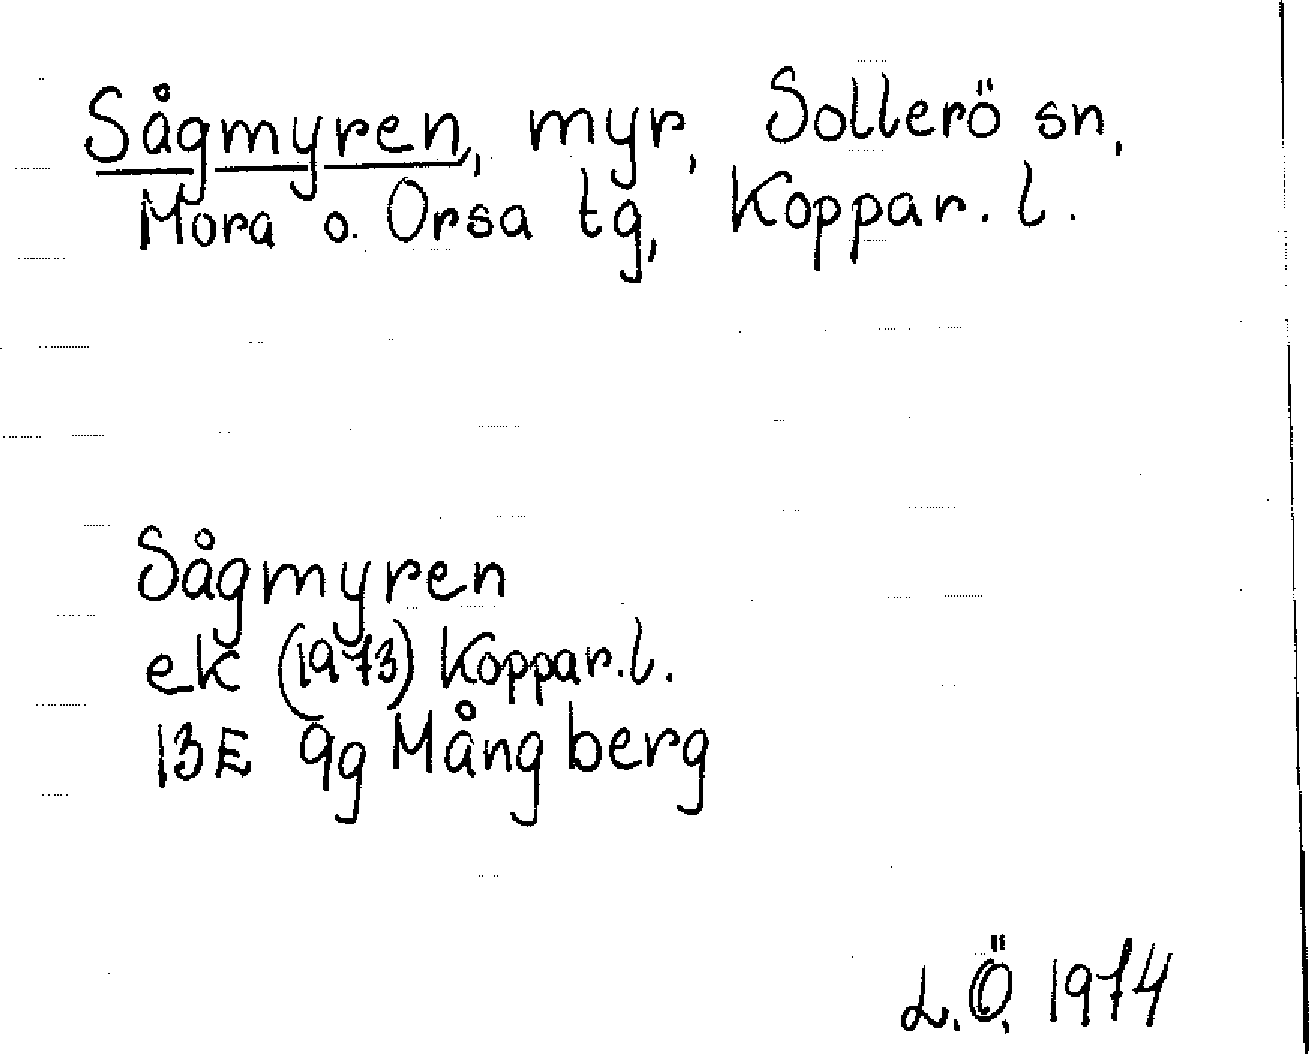 Sågmyren, myr, Sollerö sn,
Mora o. Orsa tg, Koppar. l.
Sågmyren
ek (1973) Koppar.l.
13E 9g Mångberg
L.Ö. 1974